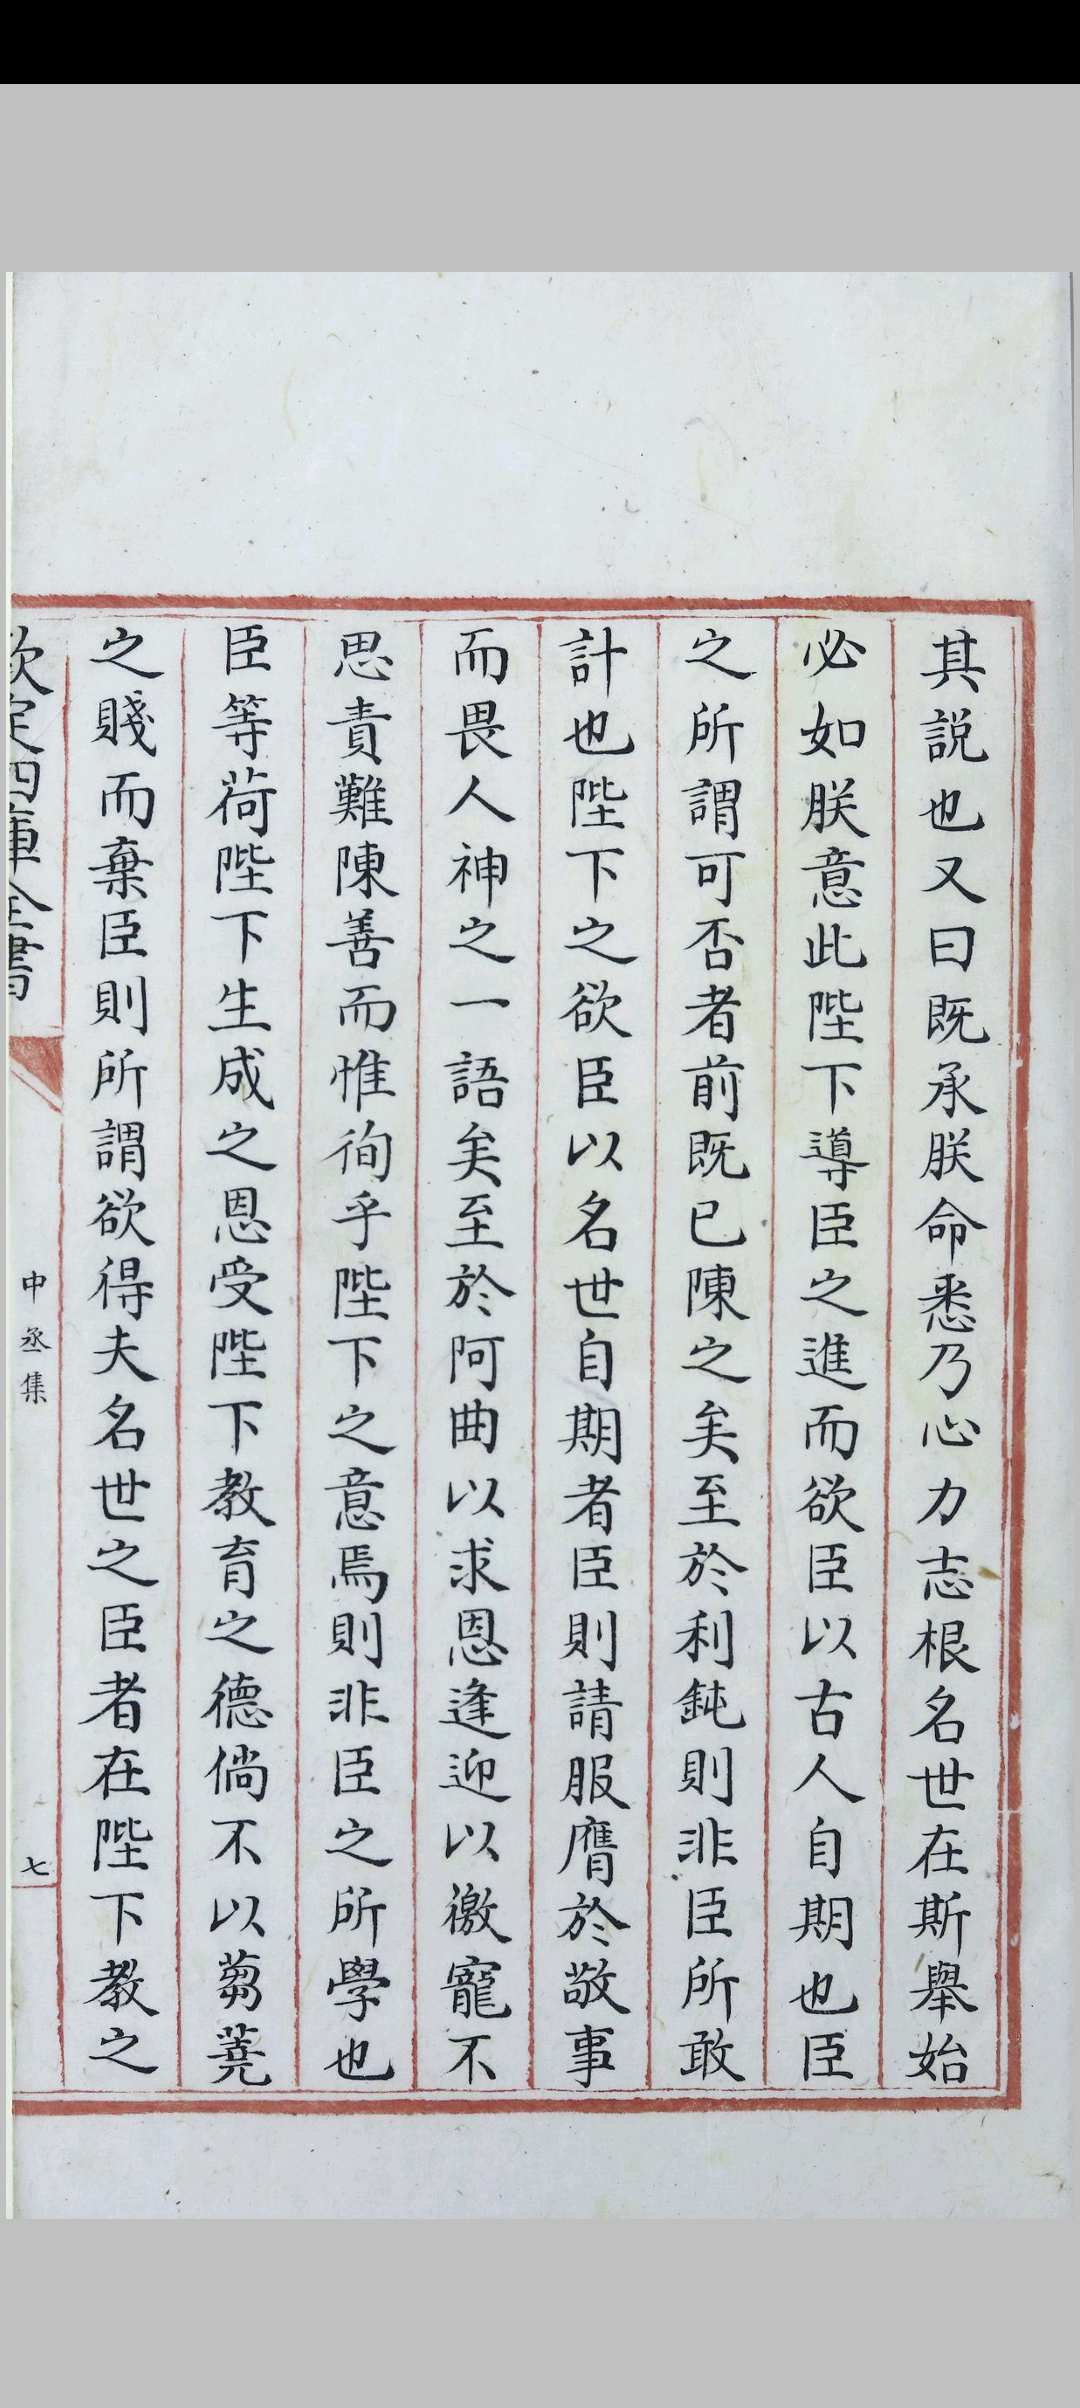 其説也又曰既承朕命悉乃心力志根名世在斯舉始
必如朕意此陛下導臣之進而欲臣以古人自期也臣
之所謂可否者前既已陳之矣至於利鈍則非臣所敢
計也陛下之欲臣以名世自期者臣則請服膺於敬事
而畏人神之一語矣至於阿曲以求恩逢迎以徼寵不
思責難陳善而惟徇乎陛下之意焉則非臣之所學也
臣等荷陛下生成之恩受陛下教育之德倘不以蒭蕘
之賤而棄臣則所謂欲得夫名世之臣者在陛下教之
欽定四庫全書
中丞集
七